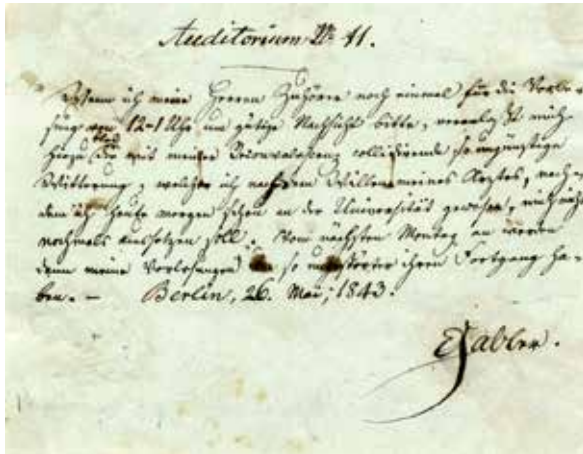 Auditorium No 11.
Wenn ich meine Herren Zuhörer noch einmal für die Vorle-
sung von 12-1 Uhr um gütige Nachsicht bitte, veranlaßt mich
hiezu bloß die mit meiner Reconvalescenz collidirende so ungünstige
Witterung, welcher ich nach dem Willen meines Arztes, nach-
dem ich heute morgen schon in der Universität gewesen, mich nicht
nochmals aussetzen soll. Vom nächsten Montag an werden
dann meine Vorlesungen so ungestörter ihren Fortgang ha-
ben. - Berlin, 26. Mai, 1843.
Gabler.